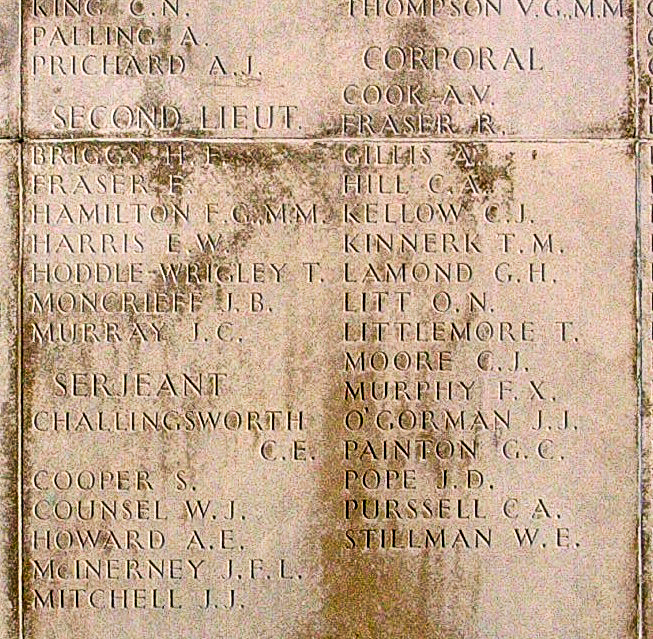 KING C.N.
PALLING A.
PRICHARD A.J.
SECOND LIEUT.
BRIGGS H.F.
FRASER E.
HAMILTON F.G., M.M.
HARRIS E.W.
HODDLE-WRIGLEY T.
MONCRIEFF J.B.
MURRAY J.C.
SERJEANT
CHALLINGSWORTH
C.E.
COOPER S.
COUNSEL W.J.
HOWARD A.E.
McINERNEY J.F.L.
MITCHELL J.J.
THOMPSON V.G., M.M.
CORPORAL
COOK A.V.
FRASER R.
GILLIS A.
HILL C.A.
KELLOW C.J.
KINNERK T.M.
LAMOND G.H.
LITT O.N.
LITTLEMORE T.
MOORE C.J.
MURPHY F.X.
O'GORMAN J.J.
PAINTON G.C.
POPE J.D.
PURSSELL C A.
STILLMAN W.E.